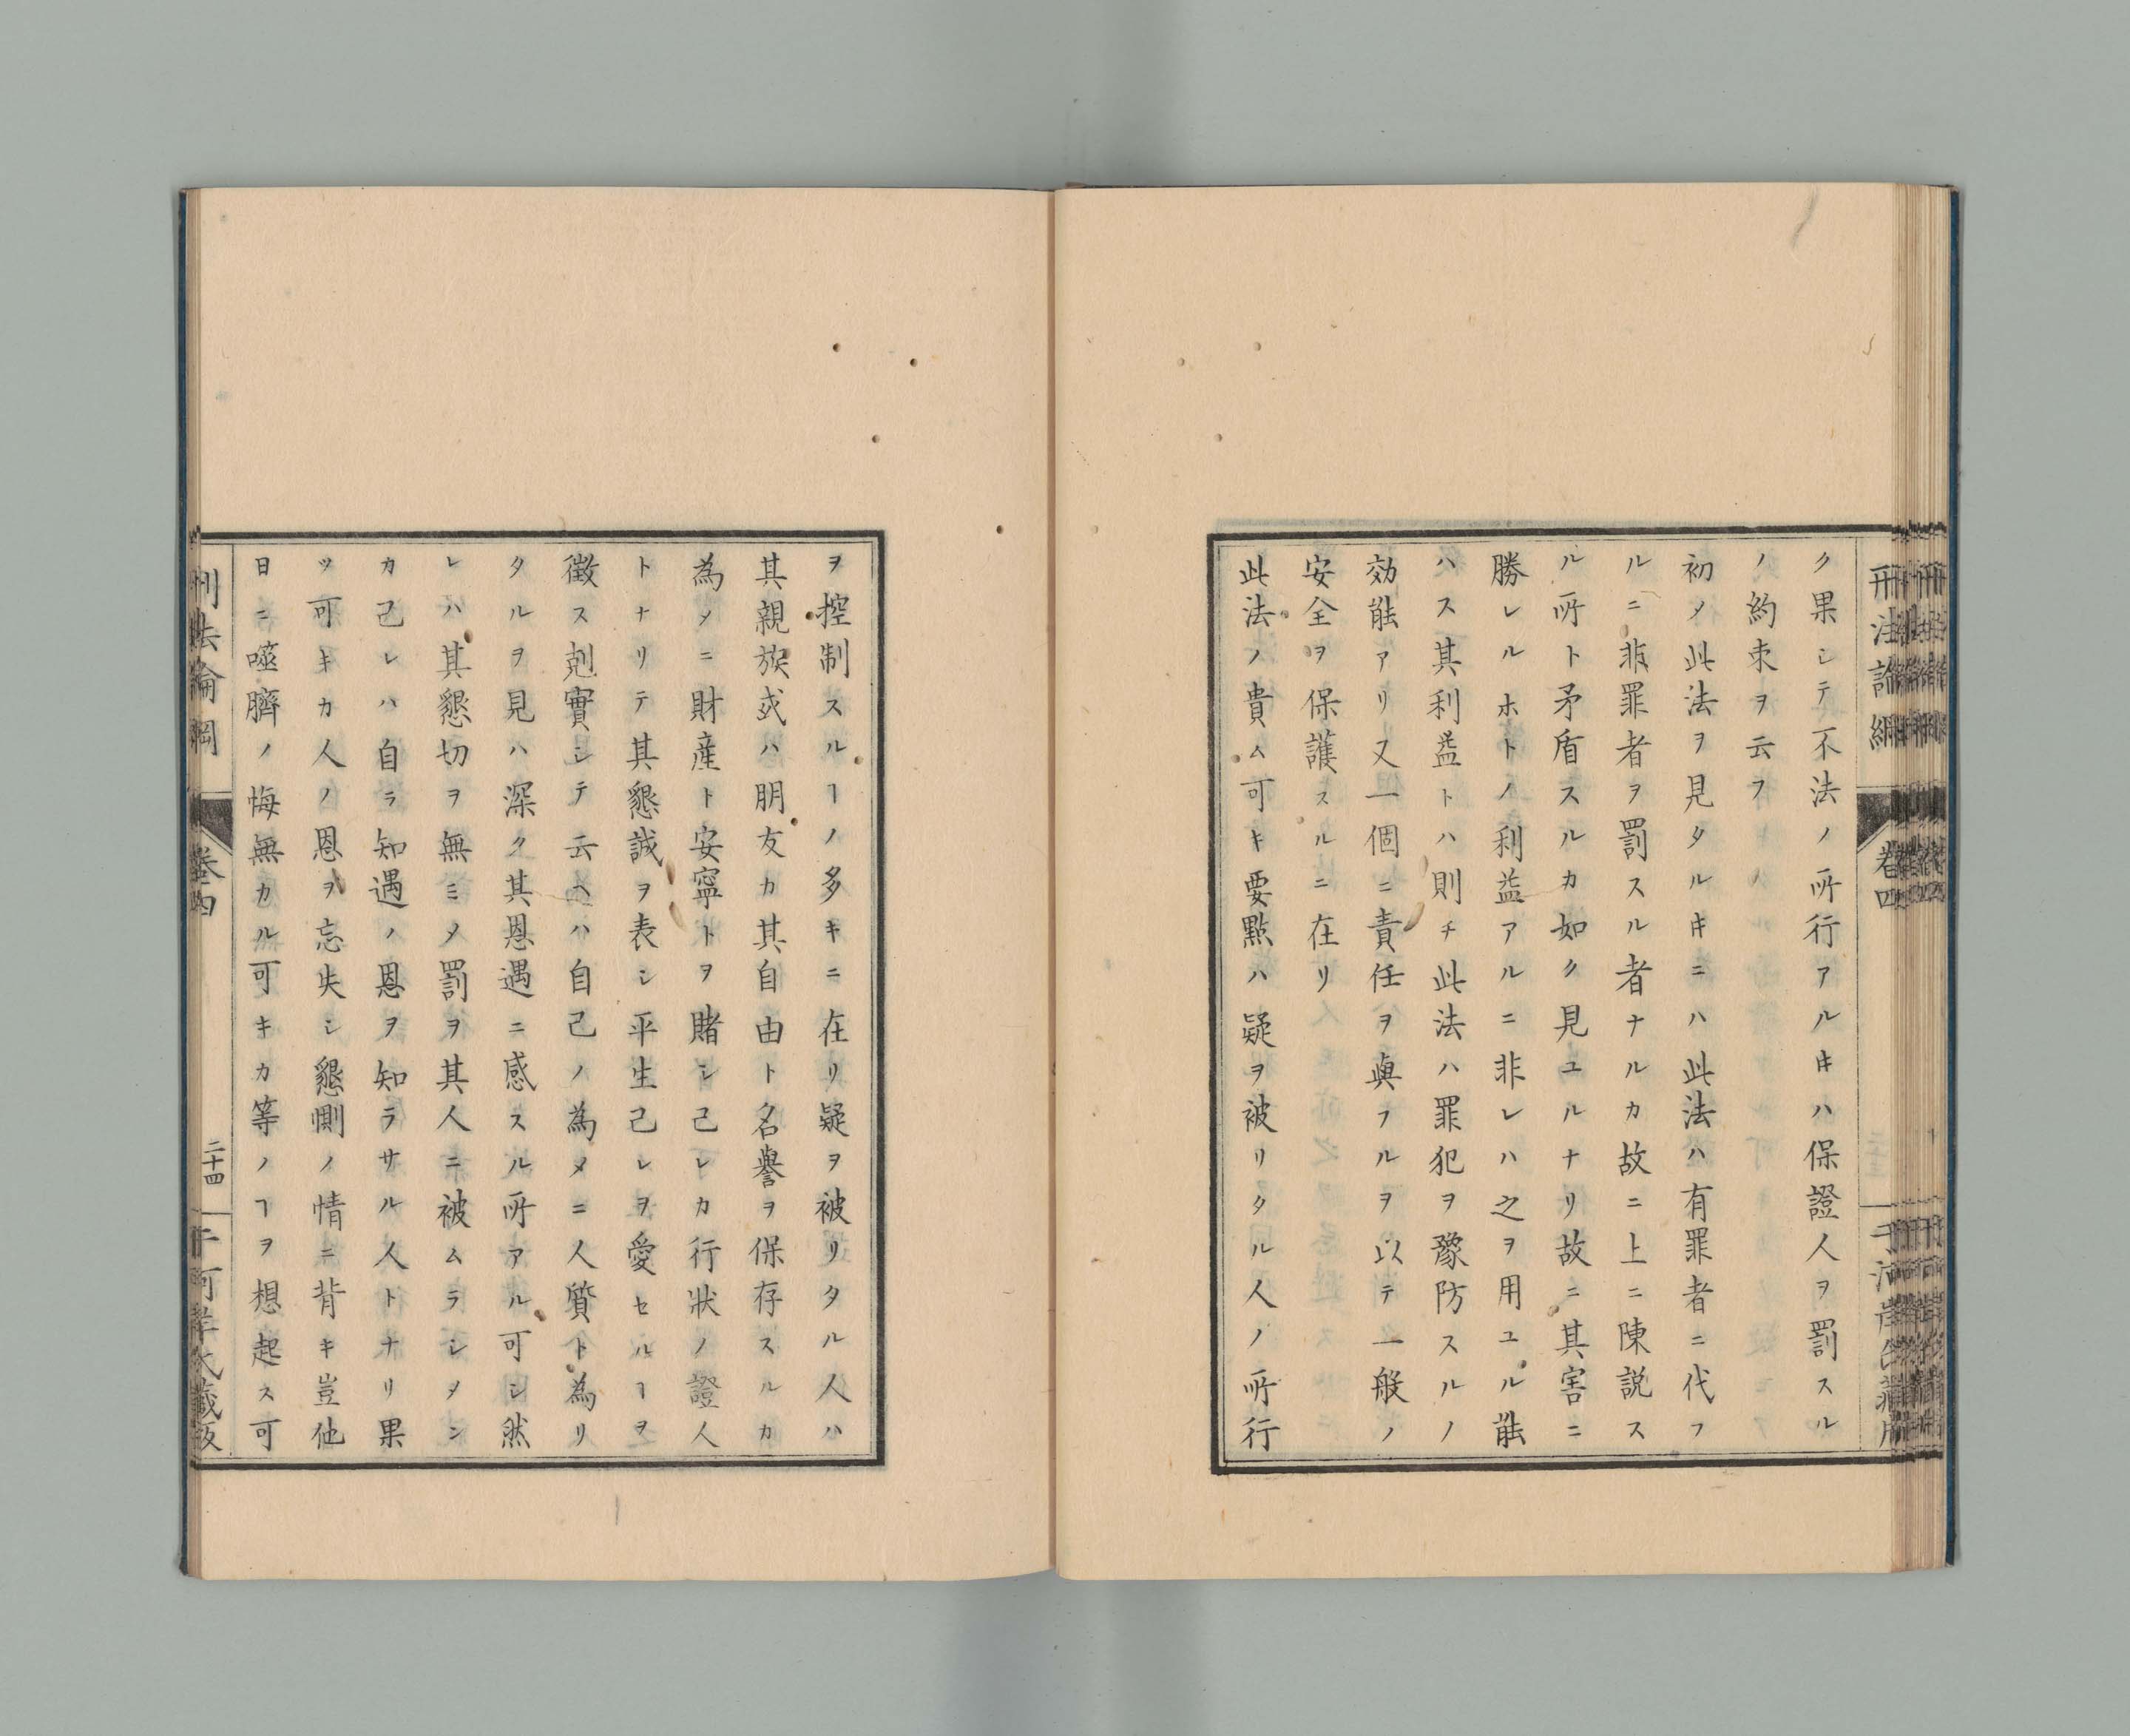 刑法論綱
卷四
ク果シテ不法ノ所行アルキハ保證人ヲ罰スル
ノ約束ヲ云フ
初メ此法ヲ見タルキニハ此法ハ有罪者ニ代フ
ルニ非罪者ヲ罰スル者ナルカ故ニ上ニ陳説ス
ル所ト矛盾スルカ如ク見ユルナリ故ニ其害ニ
勝レルホトノ利益アルニ非レハ之ヲ用ユル能
ハス其利益トハ則チ此法ハ罪犯ヲ豫防スルノ
効能アリ又一個ニ責任ヲ與フルヲ以テ一般ノ
安全ヲ保護スルニ在リ
此法ノ貴ム可キ要點ハ疑ヲ被リタル人ノ所行
ヲ控制スルヿノ多キニ在リ疑ヲ被リタル人ハ
其親族或ハ朋友カ其自由ト名譽ヲ保存スルカ
為メニ財産ト安寧トヲ賭シ己レカ行狀ノ證人
トナリテ其懇誠ヲ表シ平生己レヲ愛セルヿヲ
徴ス剋實シテ云ヘハ自己ノ為メニ人質ト為リ
タルヲ見ハ深ク其恩遇ニ感スル所アル可シ然
レハ其懇切ヲ無ミメ罰ヲ其人ニ被ムラシメン
カ己レハ自ラ知遇ノ恩ヲ知ラサル人トナリ果
ツ可キカ人ノ恩ヲ忘失シ懇惻ノ情ニ背キ豈他
日ニ噬臍ノ悔無カル可キカ等ノヿヲ想起ス可
刑法論綱
卷四
二十四